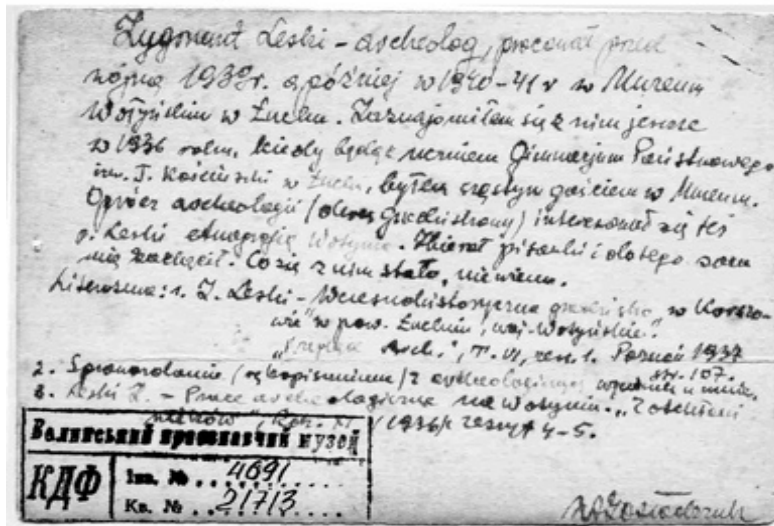 Zygmunt Leski - archeolog, pracował przed
wojną 1939 r. a później w 1940-41 r w Muzeum
Wołyńskim w Łucku. Zaznajomiłem się z nim jeszcze
w 1936 roku, kiedy będąc uczniem Gimnazjum Państwowego
im. T. Kościuszki w Łucku, byłem częstym gościem w Muzeum.
Oprócz archeologii (okres grodziskowy) interesował się też
p. Leski etnografią Wołynia. Zbierał pisanki i do tego
mię zachęcił. Co się z nim stało, nie wiem.
Literatura: 1. Z. Leski - Wczesnohistoryczne grodzisko w
w pow. Łuckim, woj. Wołyńskie".
Arch.", T. VI, zesz. 1. Poznań 1937
str. 107.
2. Sprawozdanie z archeologicznej
3. Leski Z. - Prace archeologiczne na Wołyniu. „Z otchłani
wieków", Rok. XI (1936) zeszyt 4-5.
Волинський краєзнавчий музей
КДФ
Інв. № 4691
Кв. № 21713